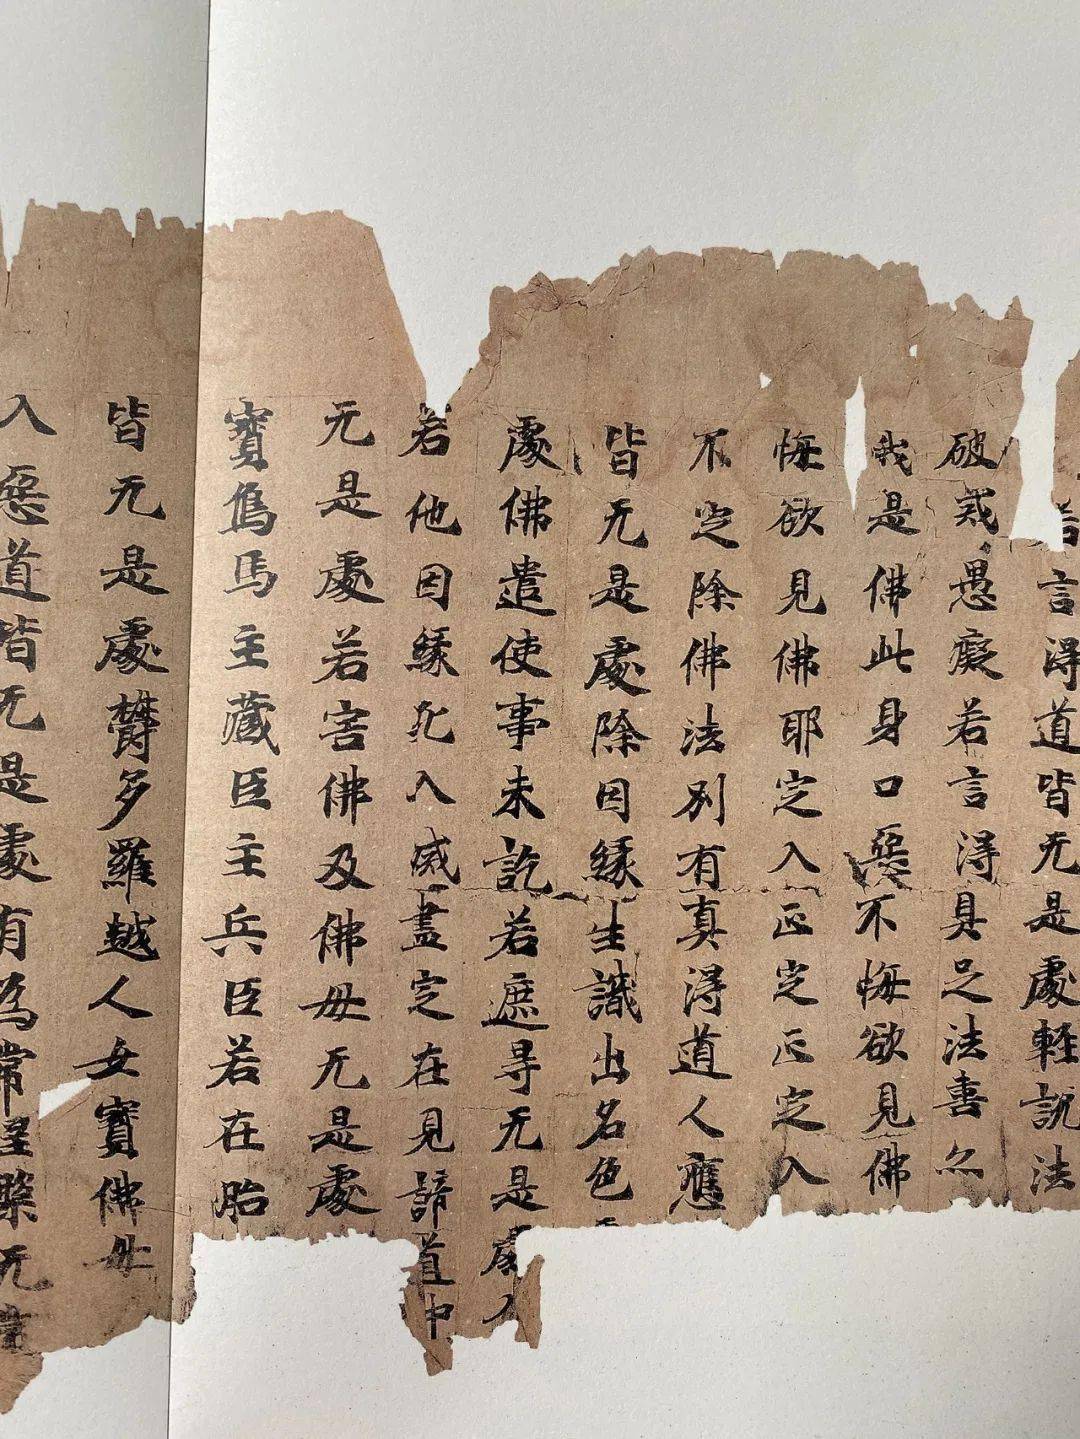 若言得道皆无是處輕說法
破戒愚癡若言得具足法善
我是佛此身口惡不悔欲見佛
悔欲見佛耶定入正定正定入
不定除佛法別有真得道人應
皆无是處除因緣生識出名色
處佛遣使事未訖若遮尋无是處入
若他因緣死入滅盡定在見諦道中
无是處若害佛及佛母无是處
寶馬主藏臣主兵臣若在胎
皆无是處欝多羅越人女寶佛母
入惡道皆无是處有為常涅槃无常